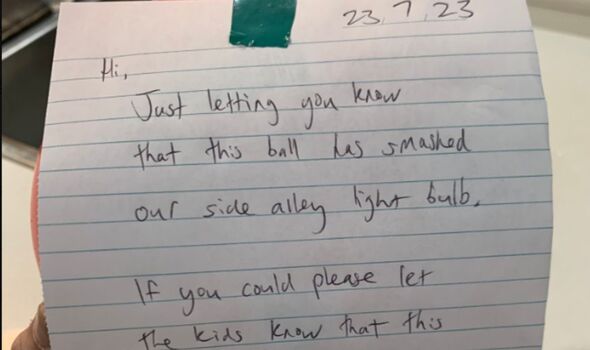 23.7.23
Hi,
Just letting you know
that this ball has smashed
our side alley light bulb.
If you could please let
the kids know that this